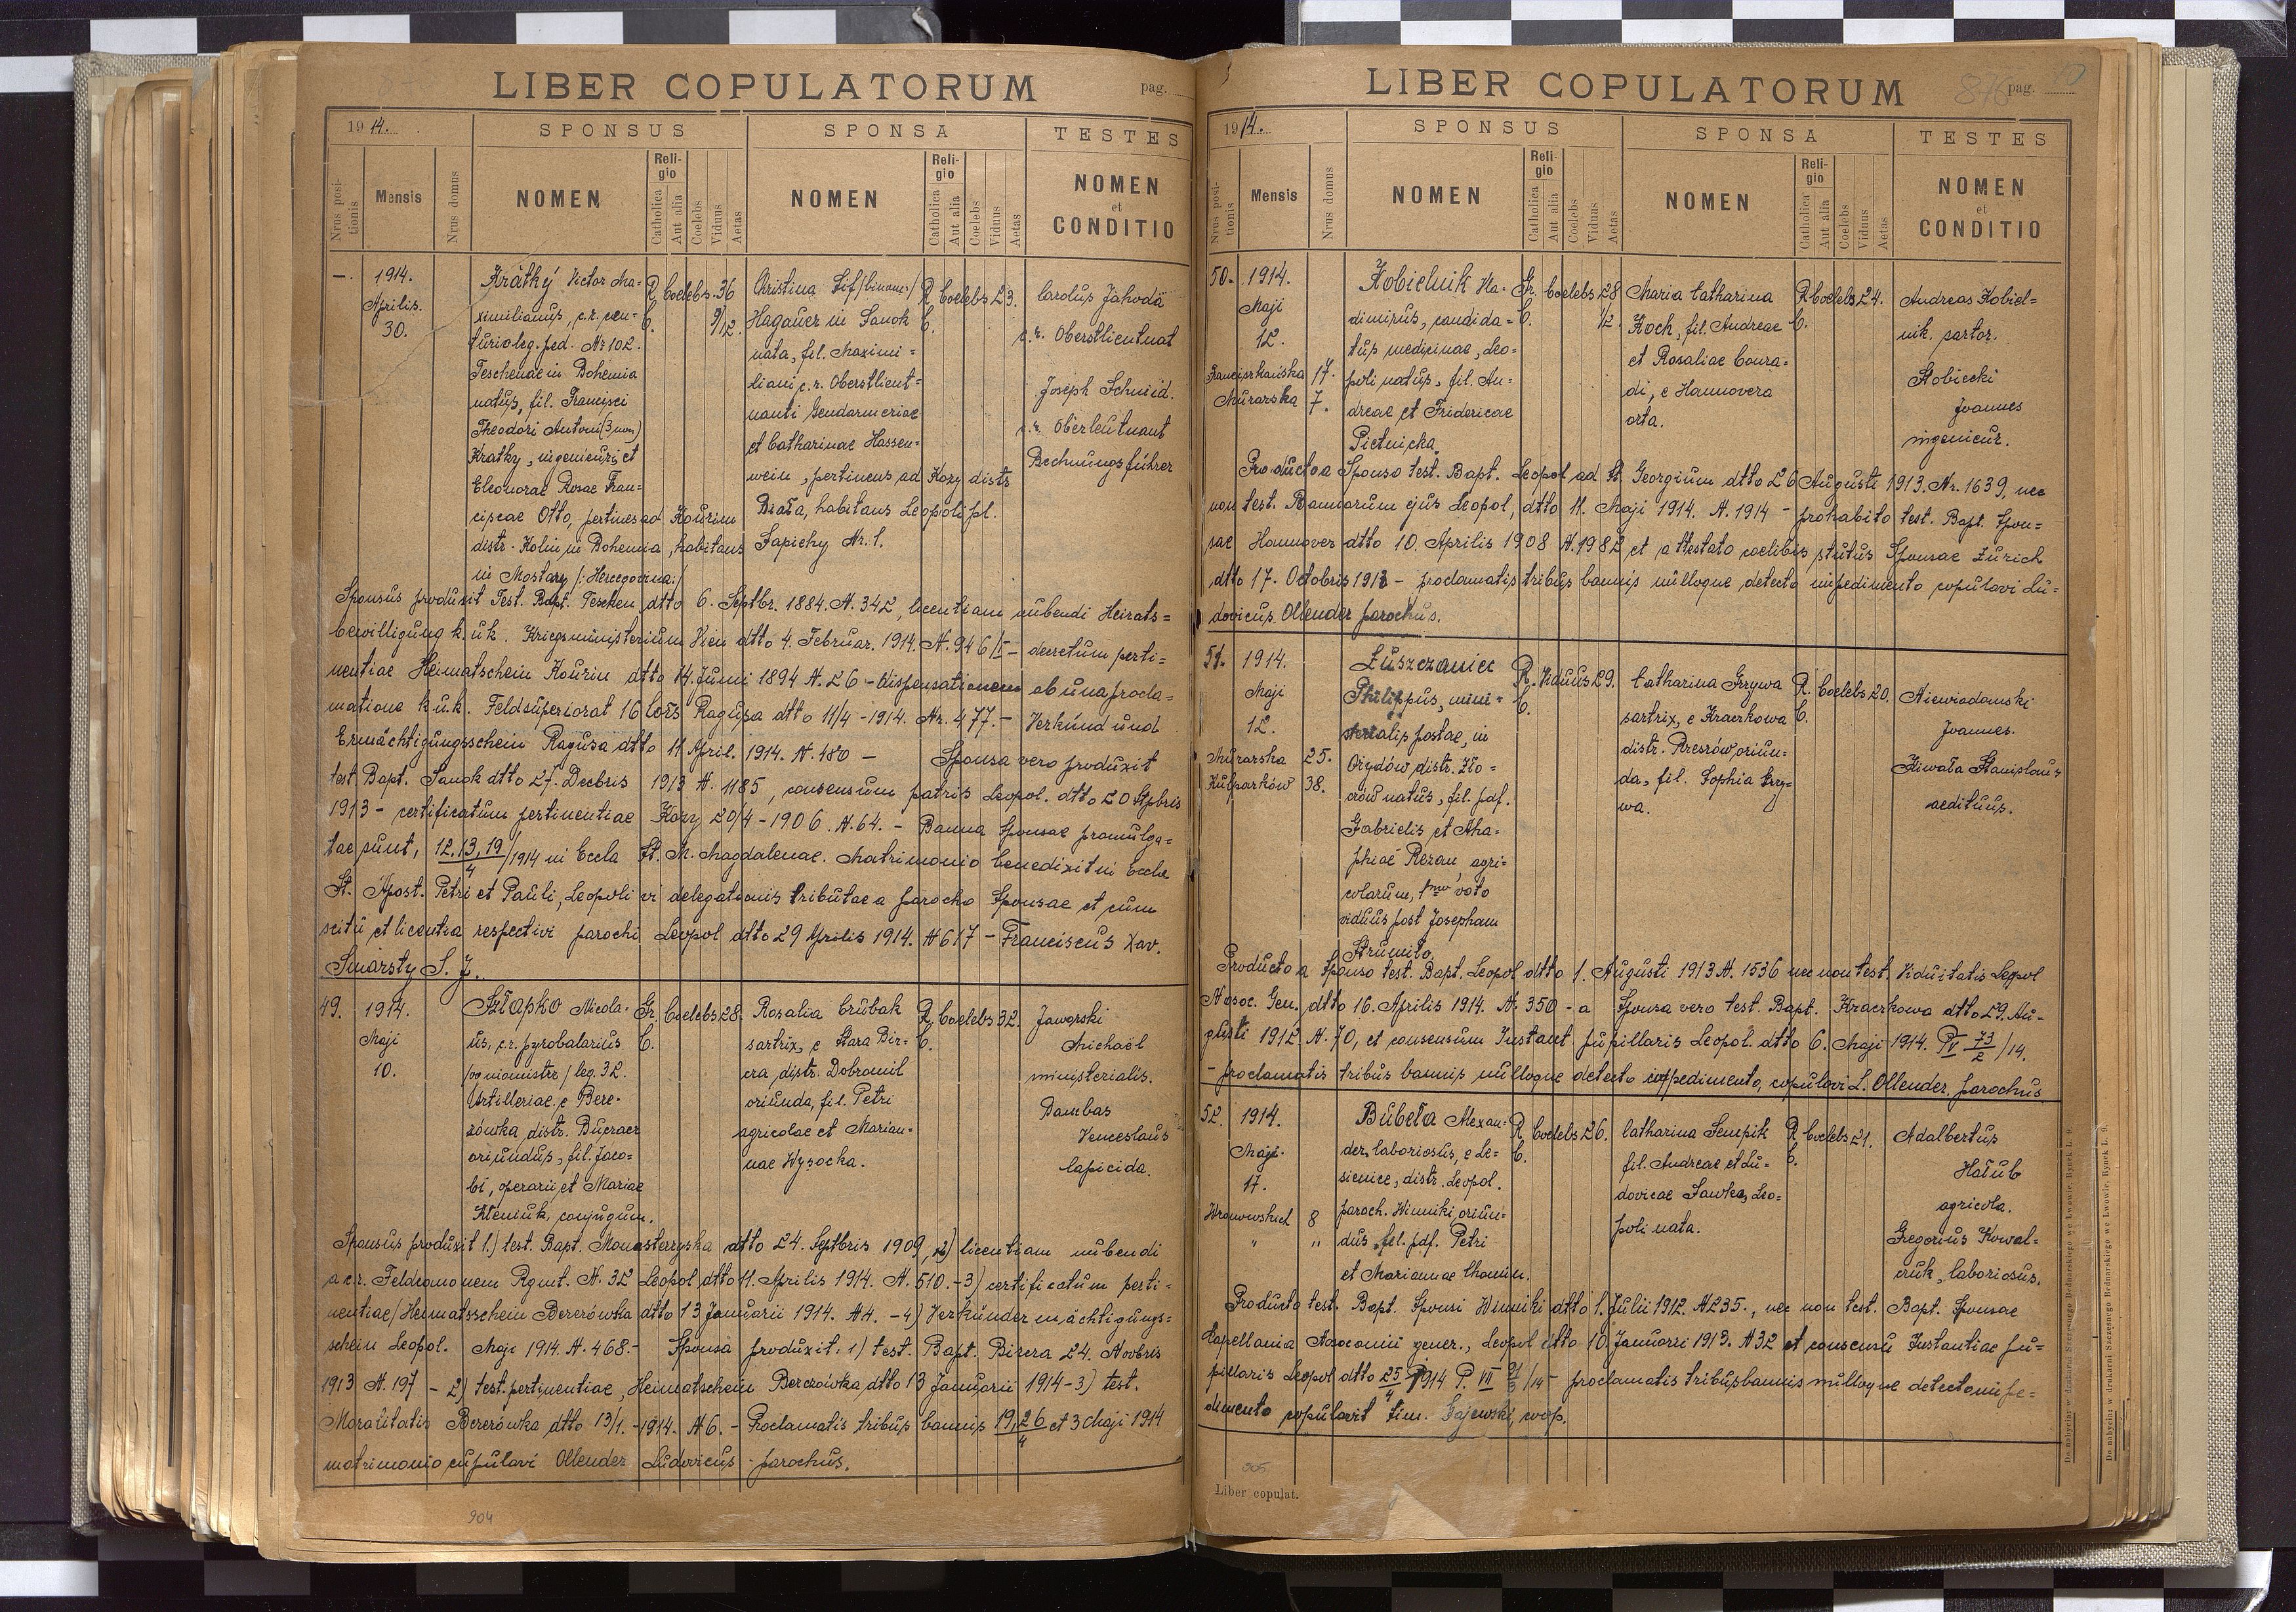 LIBER COPULATORUM
pag.
1914.
SPONSUS
SPONSA
TESTES
Nrus positionis
Mensis
Nrus domus
NOMEN
Religio
Catholica
Aut alia
Coelebs
Viduus
Aetas
NOMEN
Religio
Catholica
Aut alia
Coelebs
Viduus
Aetas
NOMEN
et
CONDITIO
–.
1914.
Aprilis.
30.
Krátký Victor Ma=
ximilianus, c.r. cen=
turio leg. ped. Nr 102.
Teschenae in Bohemia
natus, fil. Francisci
Theodori Antoni (3 nom)
Kratky, ingenieuri, et
Eleonorae Rosae Fran=
ciscae Otto, pertines ad Kouřim
distr. Kolin in Bohemia, habitans
in Mostary /:Hercegovina:/
R. C.
Coelebs.
36 9/12.
Christina Sif /binom:/
Hagauer in Sanok
nata, fil. Maximi=
liani c.r. Oberstlieut=
nanti Gendarmeriae
et Catharinae Hassen=
wein, pertinens ad Kozy distr
Biała, habitans Leopoli pl.
Sapiehy Nr. 1.
R. C.
Coelebs
23.
Carolus Jahoda
c.r. Oberstlieutnat
Joseph Schmid.
c.r. Oberleutnant
Rechnungsführer
Sponsus produxit Test. Bapt. Teschen dtto 6. Septbr. 1884. N. 342, licentiam nubendi Heirats=
bewilligung k.u.k. Kriegsministerium Wien dtto 4. Februar. 1914. N. 946/I – decretum perti=
nentiae Heimatschein Kouřim dtto 14. Junii 1894 N. 26 – dispensationem ob una procla=
matione k.u.k. Feldsuperiorat 16 Corps Ragusa dtto 11/4 – 1914. Nr. 477. – Verkünd und
Ermächtigungsschein Ragusa dtto 11 April. 1914. N. 480 – Sponsa vero produxit
test Bapt. Sanok dtto 27. Decbris 1913 N. 1185, consensum patris Leopol. dtto 20 Stpbris
1913 – certificatum pertinentiae Kozy 20/4 – 1906. N. 64. – Banna Sponsae promulga=
tae sunt, 12, 13, 19/4 /1914 in Eccla St. M. Magdalenae. Matrimonio benedixit in Eccla
St. Apost. Petri et Pauli, Leopoli vi delegationis tributae a parocho Sponsae et cum
scitu et licentia respectivi parochi Leopol dtto 29 Aprilis 1914. N 617 – Franciscus Xav.
Smarsty S. J.
49.
1914.
Maji
10.
Szłapko Nicola=
us, c.r. pyrobalarius
/ogniomistrz/ leg. 32.
Artilleriae, e Bere=
zówka, distr. Buczacz
oriundus, fil. Jaco=
bi, operarii et Mariae
Kteniuk, conjugum.
Gr. C.
Coelebs
28.
Rosalia Czubak
sartrix, e Stara Bir=
cza, distr. Dobromil
oriunda, fil. Petri
agricolae et Marian=
nae Wysocka.
R. C.
Coelebs
32.
Jaworski
Michael
ministerialis.
Dambas
Venceslaus
lapicida.
Sponsus produxit 1.) test. Bapt. Monasterzyska dtto 24. Septbris 1909, 2) licentiam nubendi
a c.r. Feldcanonem Rgmt. N. 32 Leopol dtto 11. Aprilis 1914. N. 510. – 3) certificatum perti=
nentiae/Heimatsschein Berezówka dtto 13 Januarii 1914. N 4. – 4) Verkündermächtigungs=
schein Leopol. Maji 1914. N. 468. – Sponsa produxit: 1) test. Bapt. Bircza 24. Novbris
1913 N. 197 – 2) test. pertinentiae, Heimatschein Berezówka dtto 13 Januarii 1914 – 3) test.
Moralitatis Berezówka dtto 13/1. – 1914. N 6. – Proclamatis tribus bannis 19, 26/4 et 3 Maji 1914
matrimonio cupulavi Ollender Ludovicus – parochus.
904
LIBER COPULATORUM
846 pag.
1914.
SPONSUS
SPONSA
TESTES
Nrus positionis
Mensis
Nrus domus
NOMEN
Religio
Catholica
Aut alia
Coelebs
Viduus
Aetas
NOMEN
Religio
Catholica
Aut alia
Coelebs
Viduus
Aetas
NOMEN
et
CONDITIO
50.
1914.
Maji
12.
Franciszkańska 17.
Murarska 7.
Kobielnik Wla=
dimirus, candida=
tus medicinae, Leo=
poli natus, fil. An=
dreae et Fridericae
Pietnicka.
Gr. C.
Coelebs
28 1/2.
Maria Catharina
Koch, fil. Andreae
et Rosaliae Conra=
di, e Hannovera
orta.
R. C.
Coelebs
24.
Andreas Kobiel=
nik, sartor.
Stobiecki
Joannes
ingenieur.
Producto a Sponso test. Bapt. Leopol ad St. Georgium dtto 26 Augusti 1913. Nr. 1639, nec
non test. Bannorum ejus Leopol, dtto 11. Maji 1914. N. 1914 – prohabito test. Bapt. Spon=
sae Hannover dtto 10. Aprilis 1908 N. 1982 et attestato coelibis status Sponsae Zurich
dtto 17. Octobris 1912 – proclamatis tribus bannis nulloque detecto impedimento copulavi Lu=
dovicus Ollender parochus.
51.
1914.
Maji
12.
Murarska 25.
Kulparków 38.
Łuszczaniec
Philippus, mini=
sterialis postae, in
Ożydów, distr. Zło=
czów natus, fil. pdf.
Gabrielis et Aha=
phiae Rezan, agri=
colarum, 1mo voto
viduus post Josepham
Strumiło.
R. C.
Viduus
29.
Catharina Grzywa
sartrix, e Kraczkowa
distr. Rzeszów oriun=
da, fil. Sophia Grzy=
wa.
R. C.
Coelebs
20.
Niewiadomski
Joannes.
Kiwała Stanislaus
aedituus.
Producto a Sponso test. Bapt. Leopol dtto 1. Augusti 1913 N. 1536 nec non test. Viduitatis Leopol
Nosoc. Gen. dtto 16. Aprilis 1914. N. 350 – a Sponsa vero test. Bapt. Kraczkowa dtto 29. Au=
gusti 1912 N. 70, et consensum Instant. pupillaris Leopol. dtto 6. Maji 1914. P IV 73/2 /14.
– proclamatis tribus bannis nulloque detecto impedimento, copulavi L. Ollender, parochus
52.
1914.
Maji.
17.
Wronowskich 8
" "
Bubeła Alexan=
der, laboriosus, e Le=
sienice, distr. Leopol.
paroch. Winniki, oriun=
dus, fil. pdf. Petri
et Mariannae Chomin.
R. C.
Coelebs
26.
Catharina Sempik
fil. Andreae et Lu=
dovicae Sawka, Leo=
poli nata.
R. C.
Coelebs
21.
Adalbertus
Hałub
agricola.
Gregorius Kowal=
czuk, laboriosus.
Producto test. Bapt. Sponsi Winniki dtto 1. Julii 1912. N 235., nec non test. Bapt. Sponsae
Capellania Nosocomii gener., Leopol dtto 10. Januarii 1913. N 32 et consensu Instantiae pu=
pillaris Leopol dtto 25/4 1914 P. VII /14 – proclamatis tribus bannis nulloque detecto impe=
dimento copulavit Tim. Gajewski, coop.
905
Liber copulat.
Do nabycia w drukarni Szczęsnego Bednarskiego we Lwowie, Rynek L. 9.
Do nabycia w drukarni Szczęsnego Bednarskiego we Lwowie, Rynek L. 9.